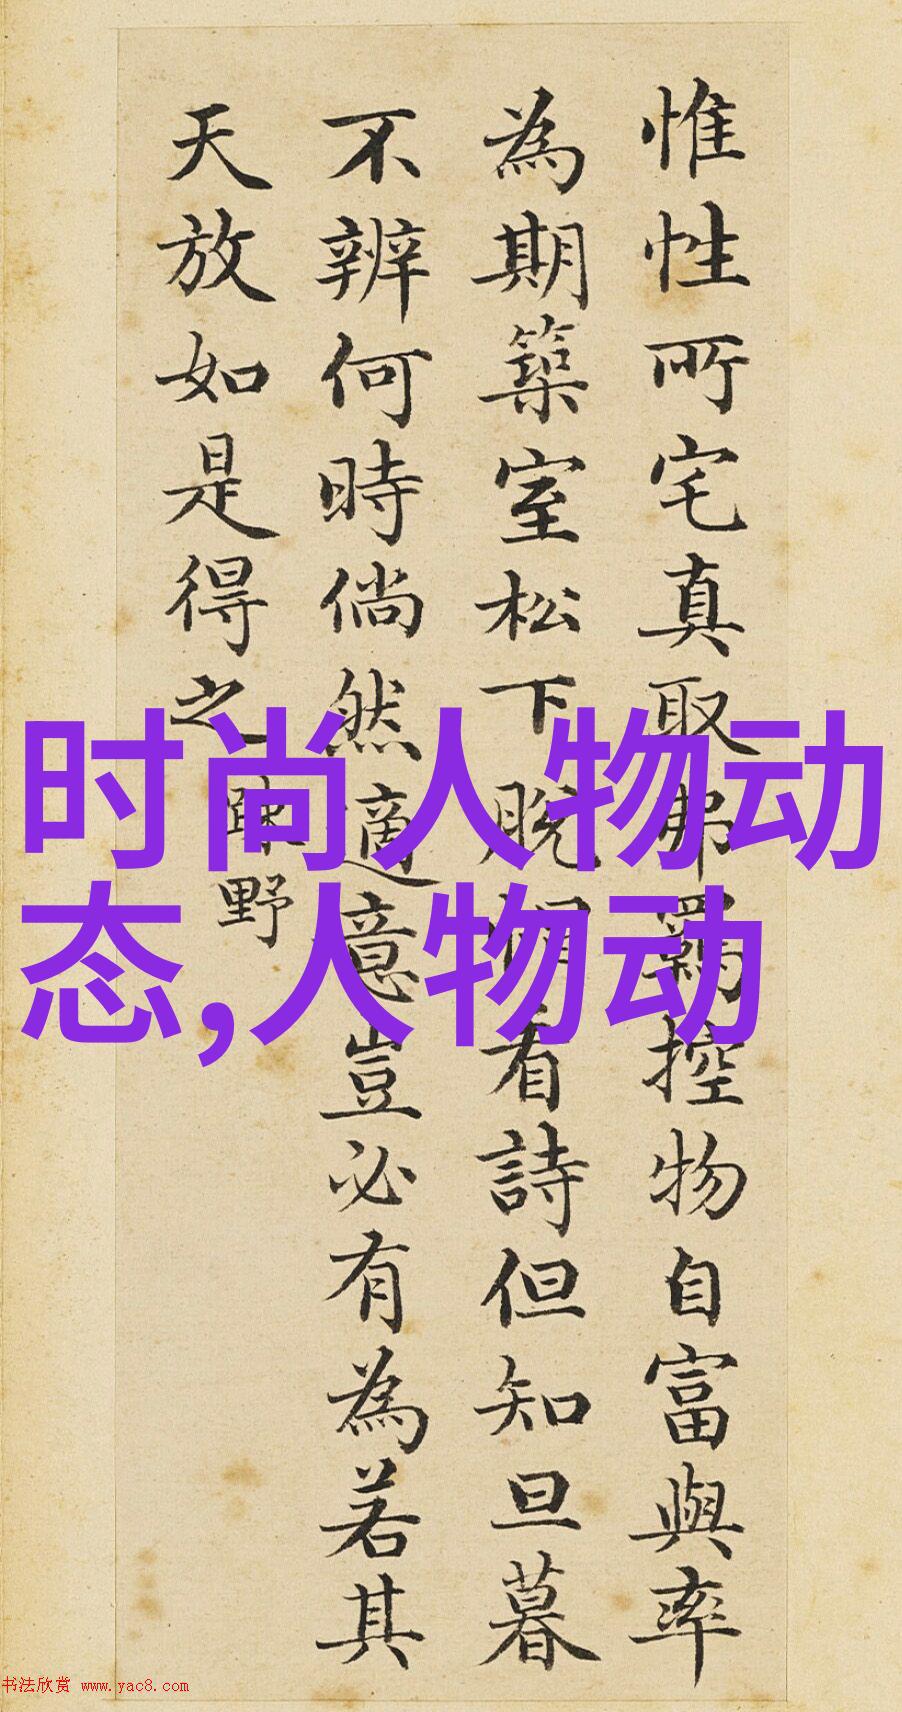 惟性所宅真取弗羈控物自富與率
為期築室松下脫帽看詩但知旦暮
不辨何時倘然適意豈必有為若其
天放如是得之
疎野
时尚人物动
态,人物动
书法欣赏 www.yac8.com